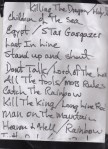 Killing The Dragon / 
Children of The Sea
Egypt / Star Gazer
Lost In Line
Stand up and shout
Don't Talk / Lord of the Last
All The Fools Mobs Rules
Catch The Rainbow
Kill The King / Long Live Roc
Man on The Mountain
Heaven & Hell / Rainbow